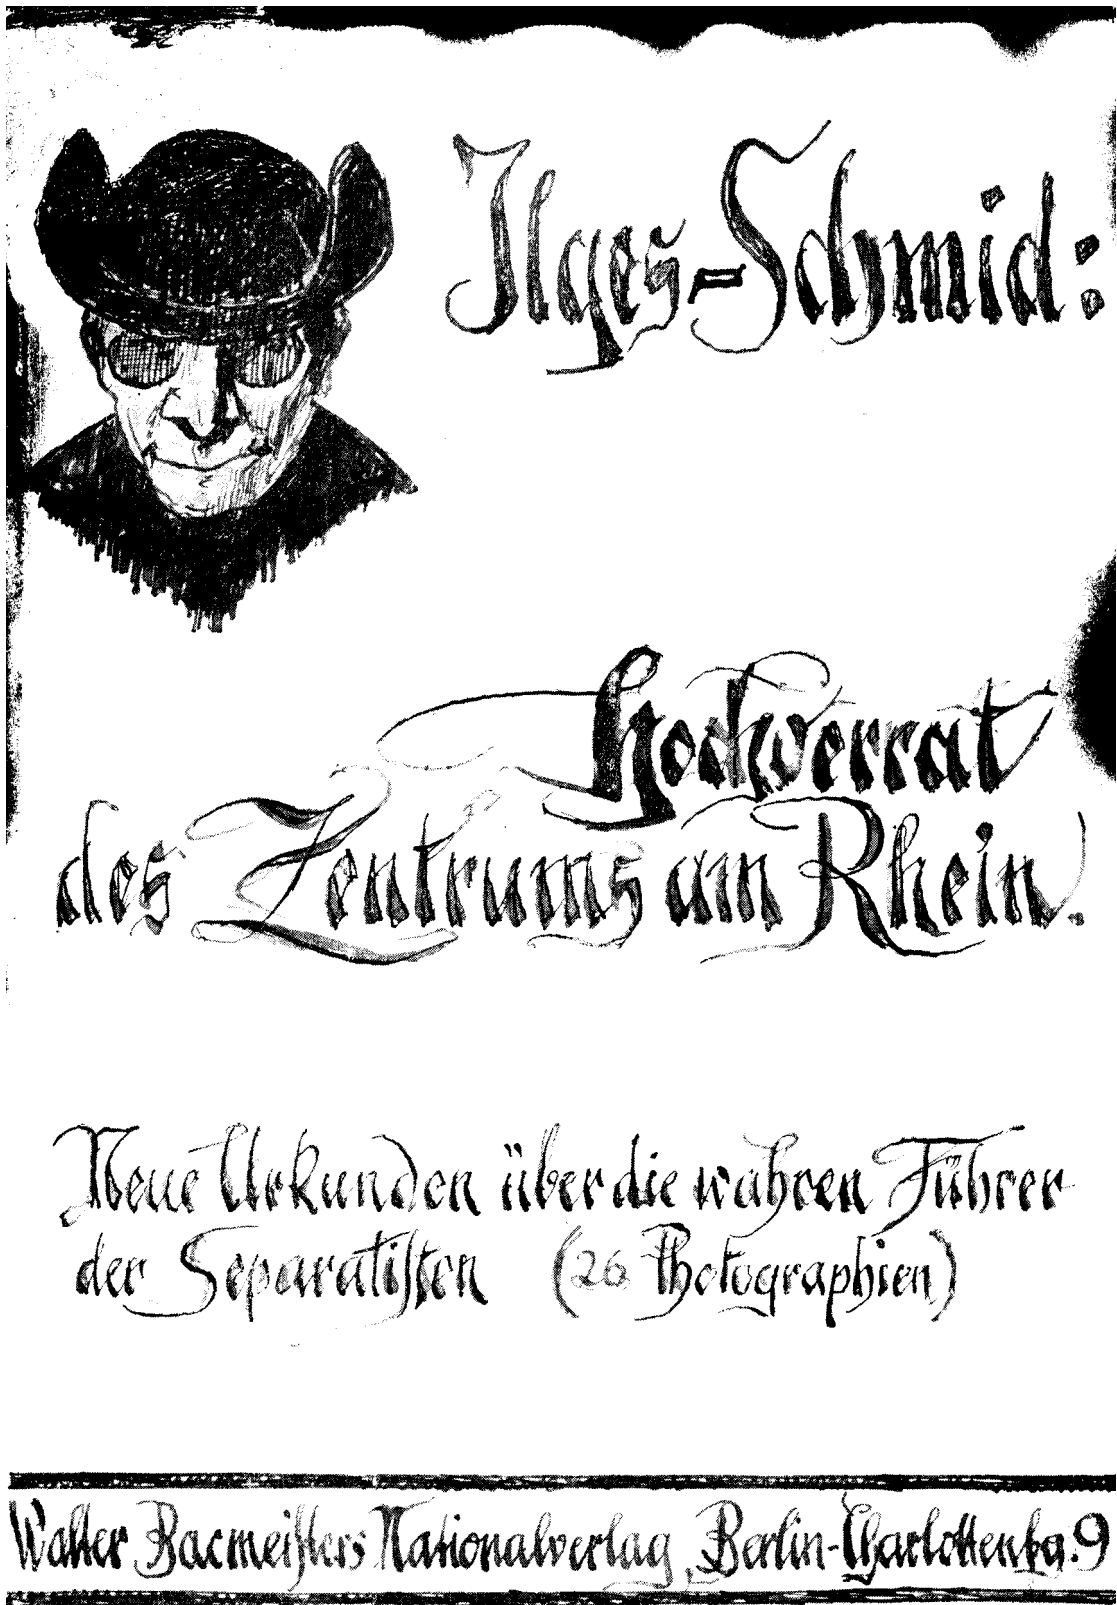 Ilges-Schmid:
Hochverrat
des Zentrums am Rhein.
Neue Urkunden über die wahren Führer
der Separatisten (26 Photographien)
Walter Bacmeisters Nationalverlag, Berlin-Charlottenbg. 9